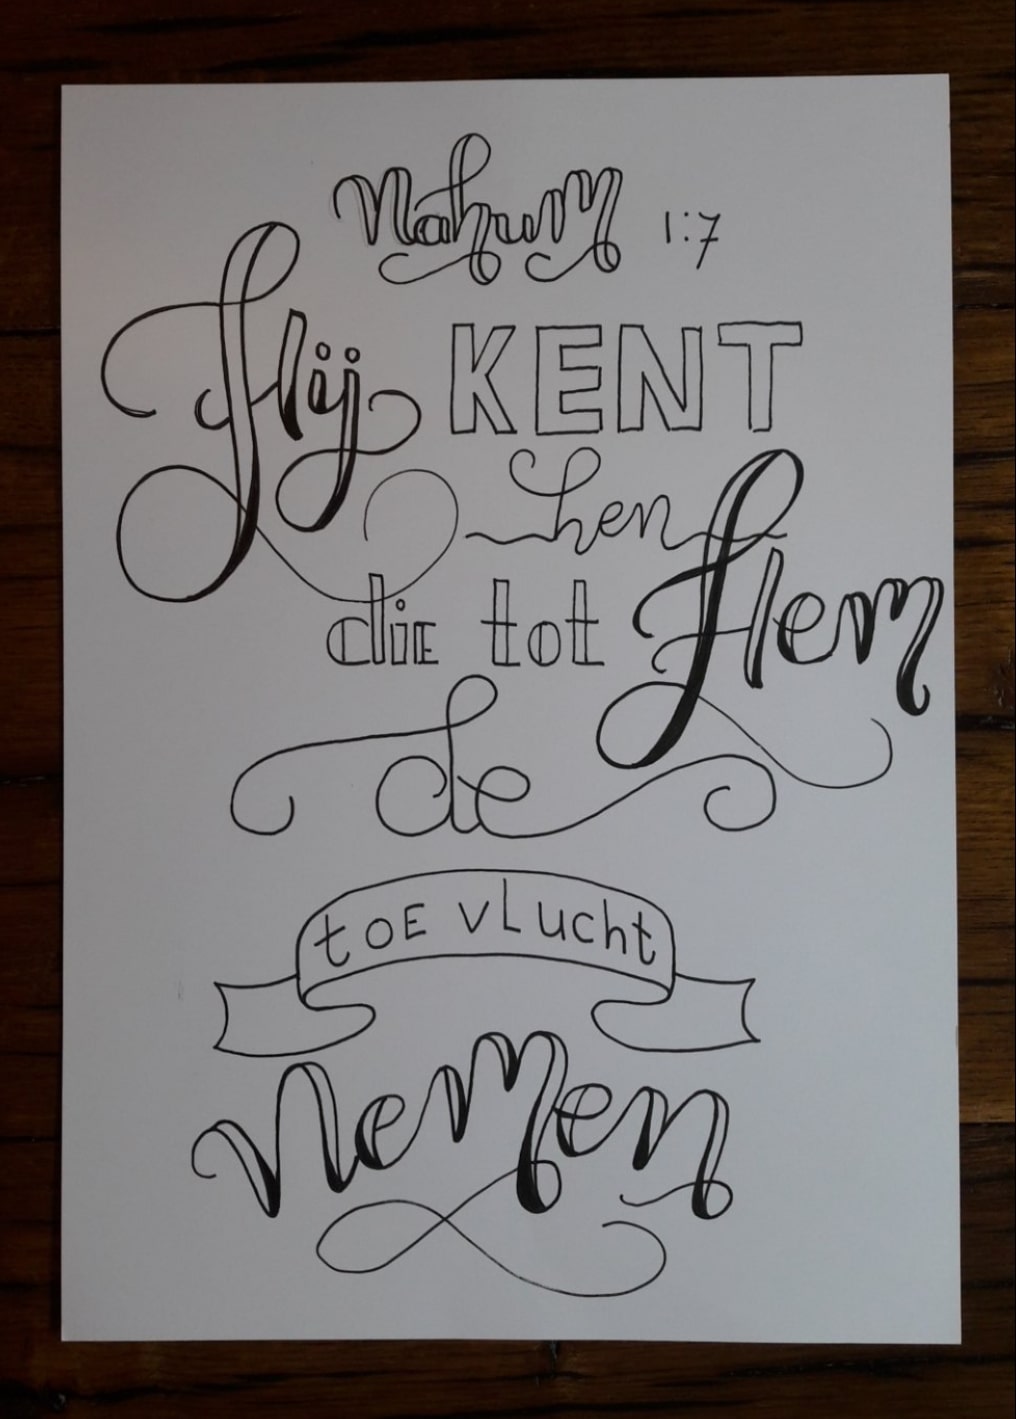 Nahum 1:7
Hij KENT
hen
die tot Hem
de
toevlucht
nemen